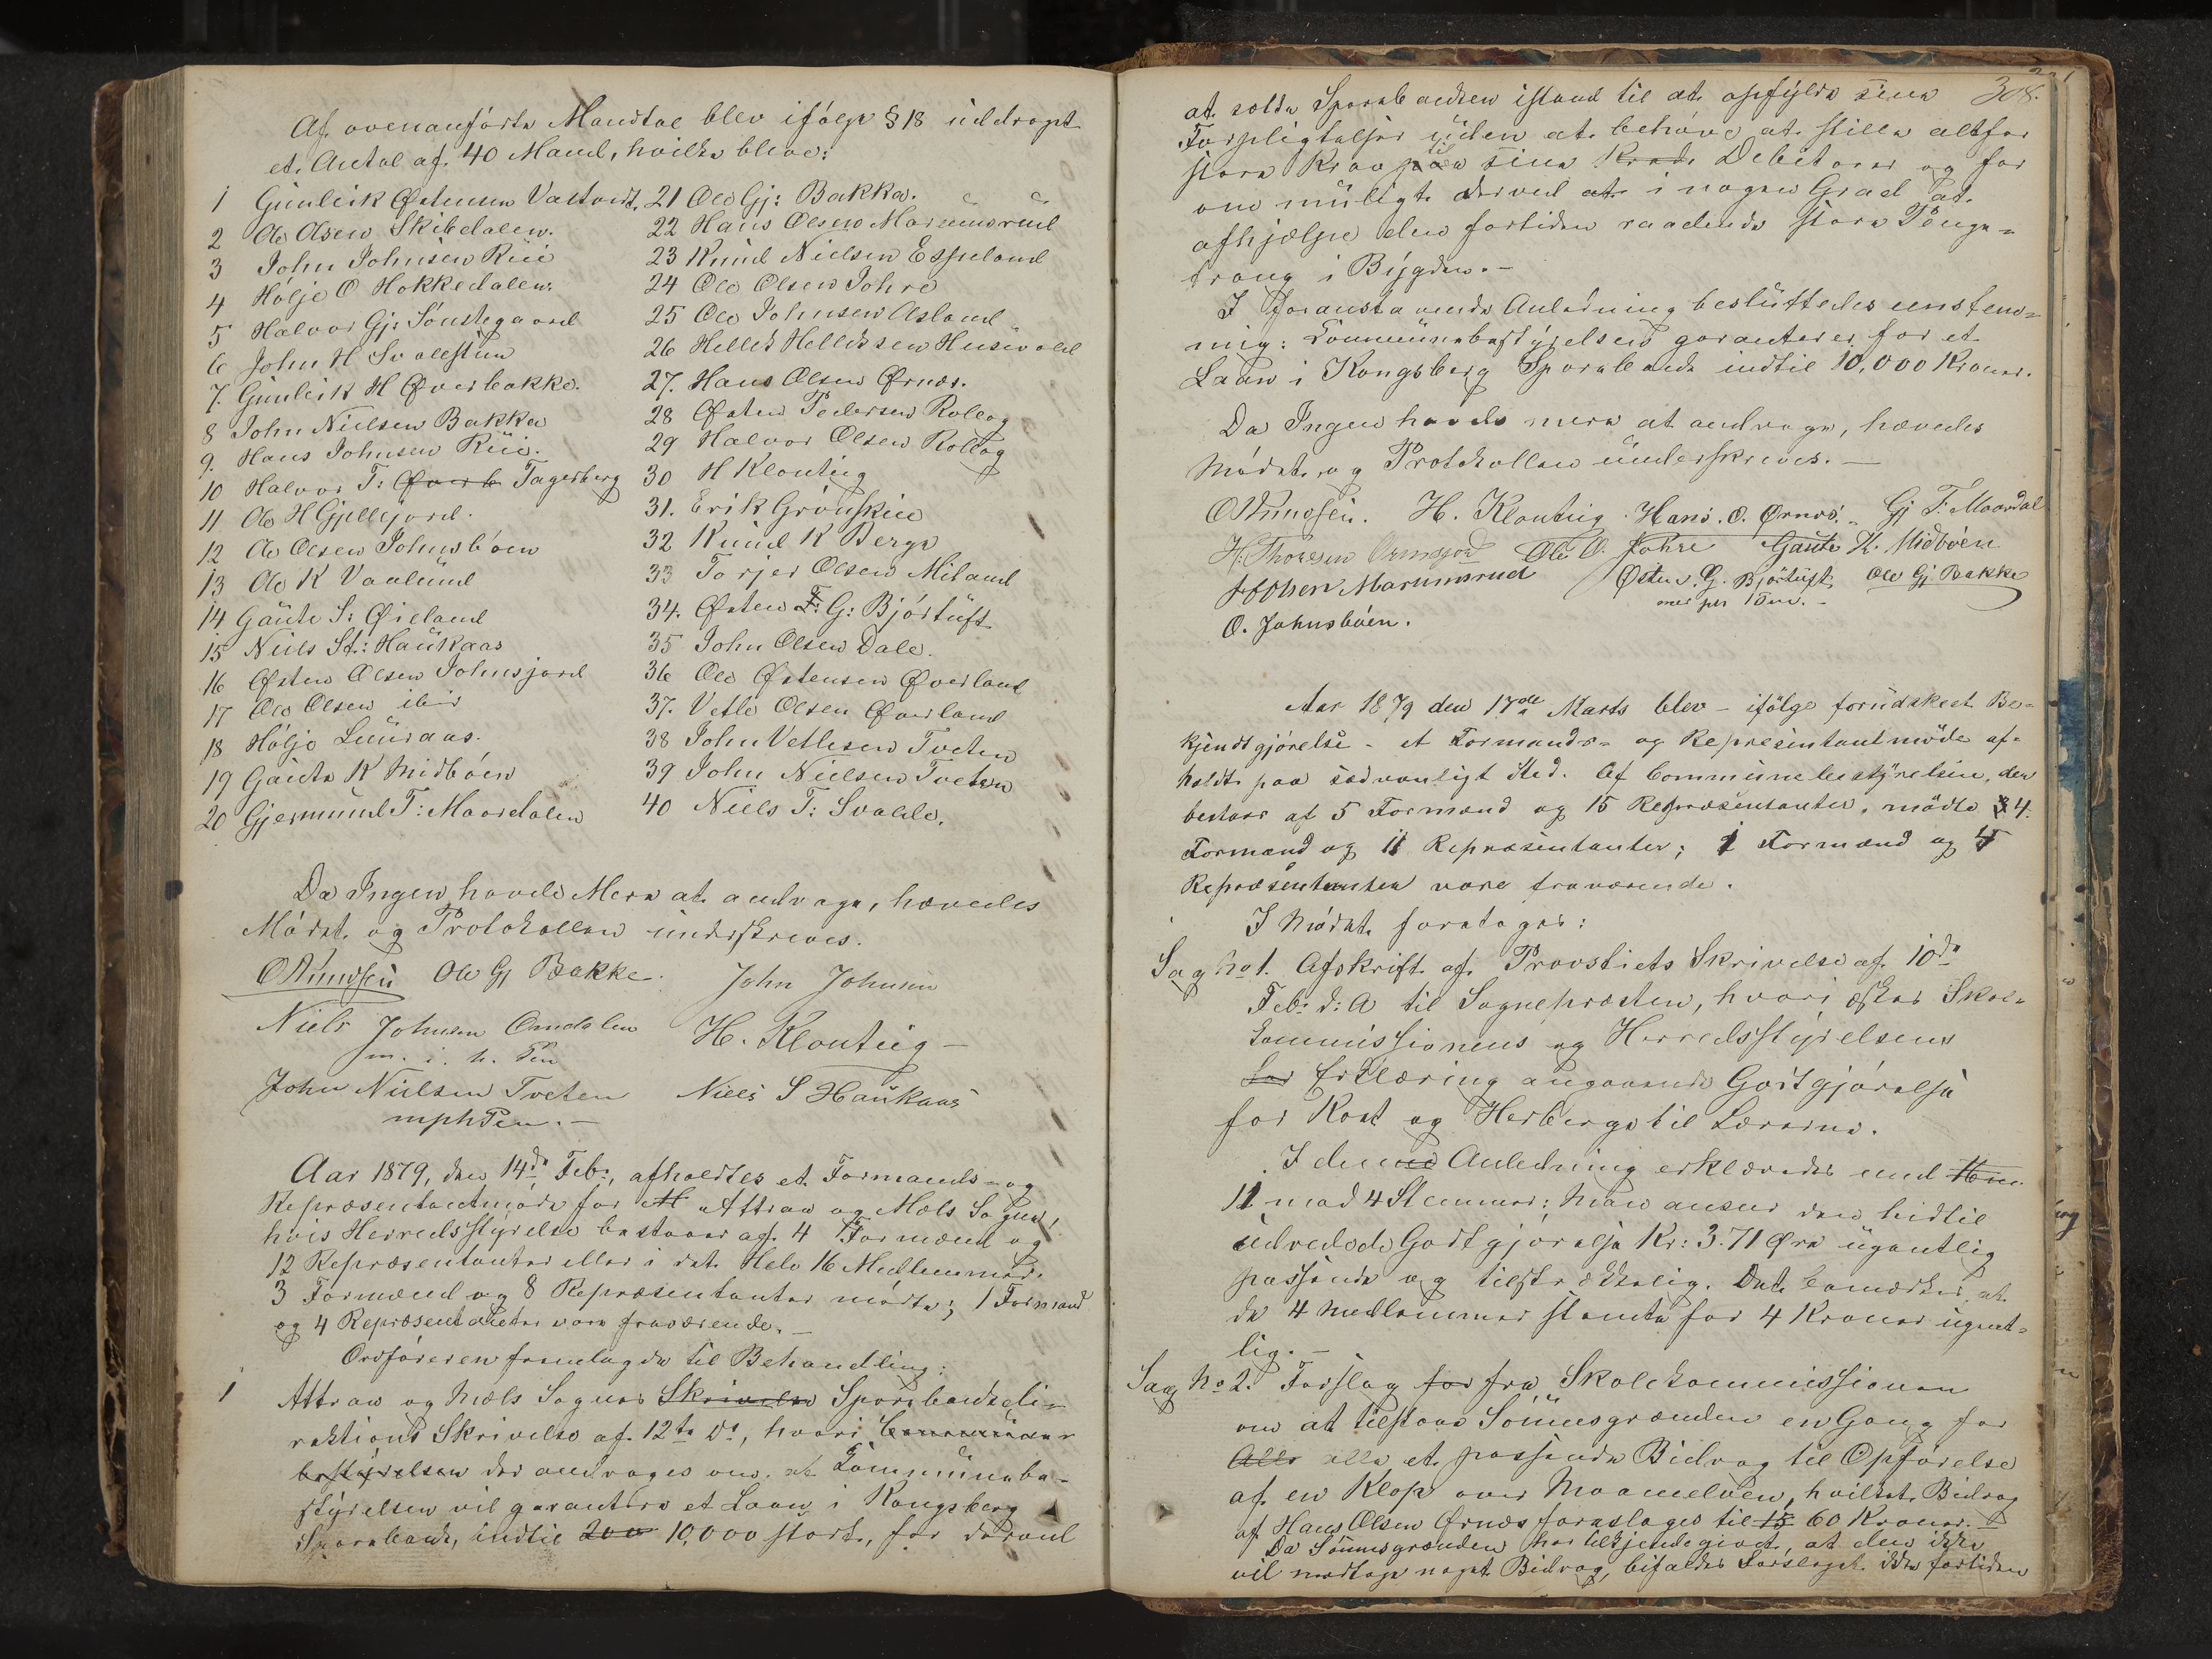 Af ovenanförte Mandtal blev ifölge § 18 uddraget
et Antal af 40 Mand, hvilke bleve:
1 Gunleik Østensen Vastveit.
2 Ole Olsen Skibsdalen.
3 John Johnsen Rüi
4 Hölje O Hokkedalen.
5 Halvor Gj: Sönstegaard
6 John H Svallestun
7. Gunleik H Øverbakke.
8 John Nielsen Bakka
9. Hans Johnsen Rüi.
10 Halvor T: Øverb Tagesberg
11. Ole H Gjellejord.
12 Ole Olsen Johnsböen
13 Ole K Vaalund
14 Gaute S: Øieland
15 Niels St: Haukaas
16 Østen Olsen Johnsjord
17 Ole Olsen ibid
18 Hölje Luuraas.
19 Gaute K Midböen
20 Gjermund T: Maardalen
21 Ole Gj: Bakka.
22 Hans Olsen Marumsrud
23 Knud Nielsen Espeland
24 Ole Olsen Johre
25 Ole Johnsen Asland
26 Hellek Helleksen Husevold
27. Hans Olsen Ørnes.
28 Østen Pedersen Rollag
29 Halvor Olsen Rollag
30 H Klontig
31. Erik Grönskei
32 Knud K Berge
33 Torjer Olsen Miland
34. Østen G: Björtuft
35 John Olsen Dale.
36 Ole Østensen Øverland
37. Vetle Olsen Øverland
38 John Vetlesen Tveten
39 John Nielsen Tveten
40 Niels T: Svadde.
Da Ingen havde Mere at andrage, hævedes
Mödet og Protokollen underskreves.
O Knudsen Ole Gj Bakke. John Johnsen
Niels Johnsen Omdalen H. Klontüg –
m. i. h. Pen
John Nielsen Tveten Niels S Haukaas
mphPen. –
Aar 1879, den 14de Feb:, afholdtes et Formands- og
Repræsentantmöde for M Attraa og Mæls Sogne,
hvis Herredsstyrelse bestaaer af 4 Formænd og
12 Repræsentanter eller i det Hele 16 Medlemmer.
3 Formænd og 8 Repræsentanter mödte; 1 Formand
og 4 Repræsentanter vare fraværende. –
Ordföreren fremlagde til Behandling:
1 Attraa og Mæls Sognes Skrivelse Sparebankdi-
rektions Skrivelse af 12te Ds, hvori Commune
bestyrelsen der andrages om at Kommunebe-
styrelsen vil garantere et Laan i Kongsberg
Sparebank, indtil 200 10,000 stort, for derved
308.
at sætte Sparebanken istand til at opfylde sine
Forpligtelser uden at behöve at stille altfor
store Krav paa til sine Kred. Debitorer og for
om muligt derved at i nogen Grad at
afhjælpe den fortiden raadende store Penge-
trang i Bygden. –
I foranstaaende Anledning besluttedes enstem-
mig: Kommunebestyrelsen garanterer for et
Laan i Kongsberg Sparebank indtil 10,000 Kroner.
Da Ingen havde mere at andrage, hævedes
Mödet og Protokollen underskreves. –
O Knudsen. H. Klontüg. Hans. O. Ørnes. Gj T. Maardal
H. Thoresen Ormsjord Ole O. Johre Gaute K. Midböen
H Olsen Marumsrud Østen G. Björtuft Ole Gj Bakke
med ph Pen. –
O. Johnsböen.
Aar 1879 den 17de Marts blev – ifölge forudskeet Be-
kjendtgjörelse – et Formands- og Repræsentantmöde af-
holdt paa sædvanligt Sted. Af Communebestyrelsen, der
bestaar af 5 Formænd og 15 Repræsentanter, mödte 4
Formænd og 11 Repræsentanter; 1 Formand og 4
Repræsentanter vare fraværende.
I Mödet foretoges:
Sag No 1. Afskrift af Provstiets Skrivelse af 10de
Feb: d: A til Sognepræsten, hvori æskes Skole-
kommissionens og Herredsstyrelsens
for Erklæring angaaende Godtgjörelse
for Kost og Herberge til Lærerne.
I denne Anledning erklæredes med
11 mod 4 Stemmer: Man anser den hidtil
udredede Godtgjörelse Kr: 3.71 Øre ugentlig
passende og tilstrækkelig. Det bemærkes, at
de 4 Medlemmer stemte for 4 Kroner ugent-
lig. –
Sag No 2. Forslag for fra Skolekommissionen
om at tilstaae Sönnusgrænden en Gang for
Alle alle et passende Bidrag til Opförelse
af en Klop over Maanelven, hvilket Bidrag
af Hans Olsen Ørnes foresloges til 15 60 Kroner. –
Da Sönnusgrænden har tilkjendegivet, at den ikke
vil modtage noget Bidrag, bifaldes Forslaget ikke fortiden